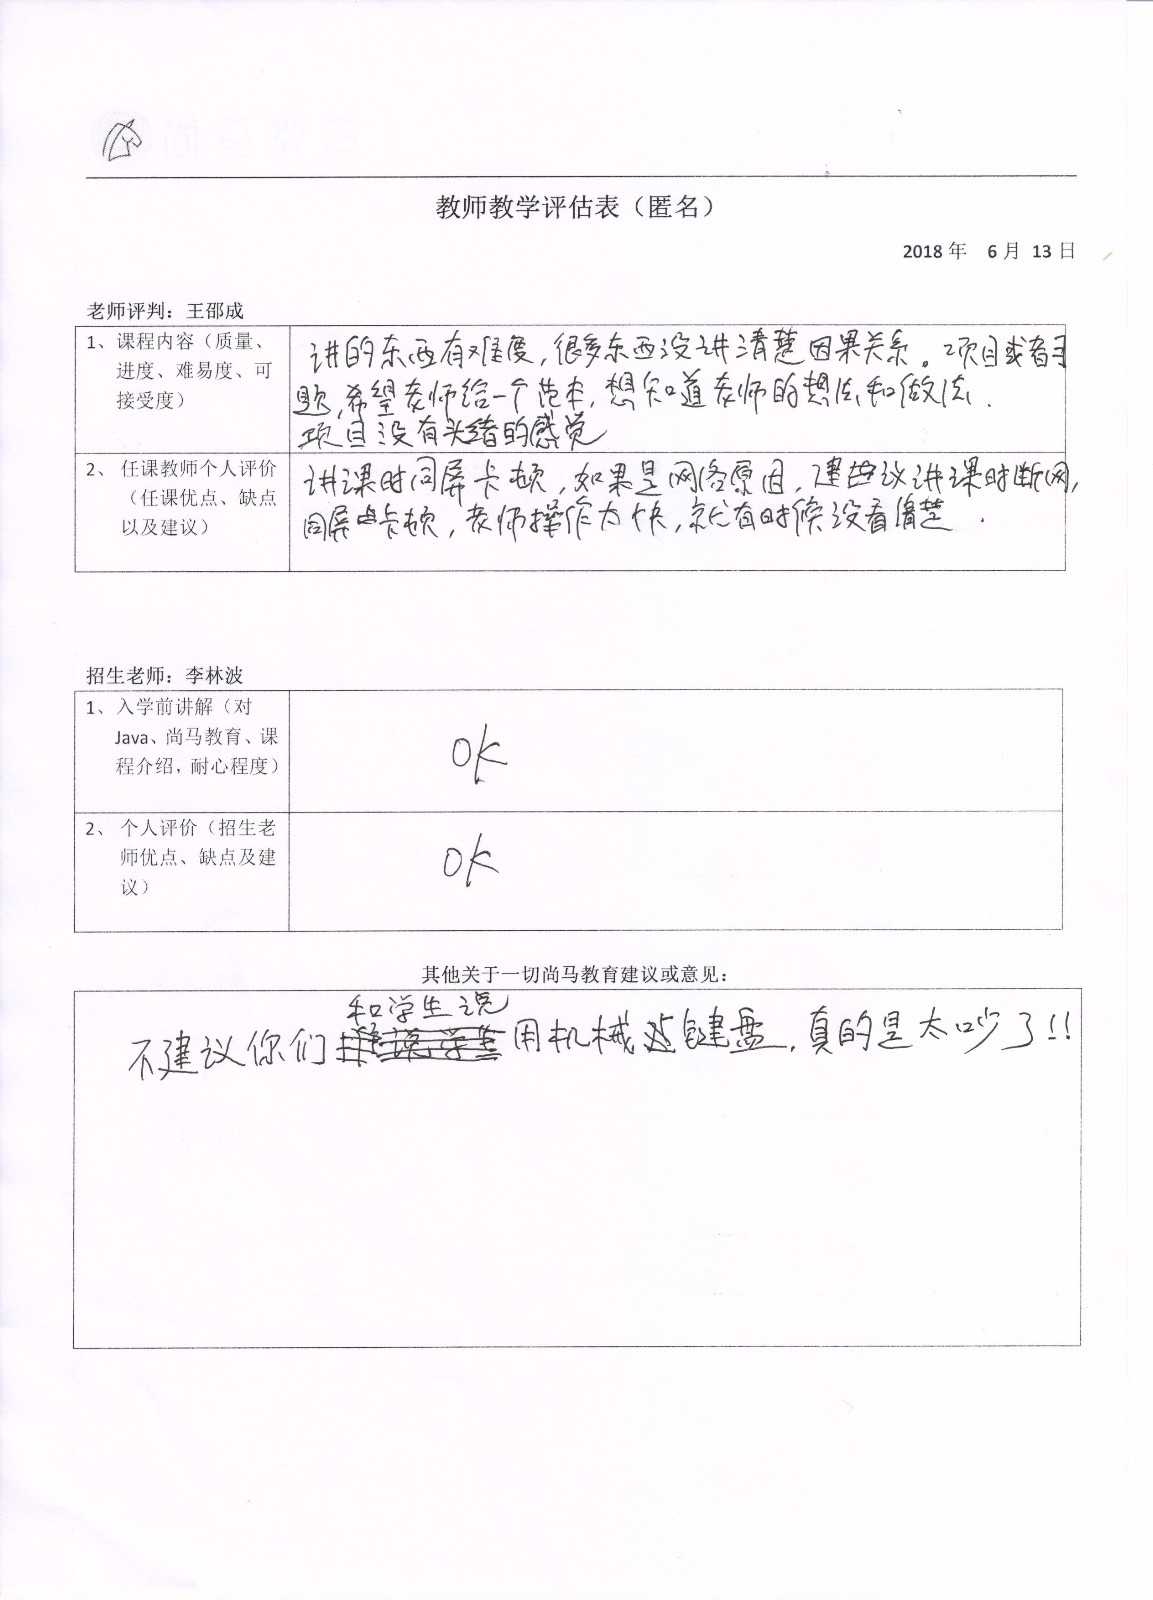 教师教学评估表（匿名）
2018 年 6 月 13 日
老师评判：王邵成
1、课程内容（质量、
进度、难易度、可
接受度）
讲的东西有难度，很多东西没讲清楚因果关系。项目或者习
题，希望老师给一个范本，想知道老师的想法和做法.
项目没有头绪的感觉
2、任课教师个人评价
（任课优点、缺点
以及建议）
讲课时同屏卡顿，如果是网络原因，建议讲课时断网，
同屏卡顿，老师操作太快，就有时候没看清楚.
招生老师：李林波
1、入学前讲解（对
Java、尚马教育、课
程介绍，耐心程度）
OK
2、个人评价（招生老
师优点、缺点及建
议）
OK
其他关于一切尚马教育建议或意见：
和学生说
不建议你们 用机械键盘，真的是太吵了!!